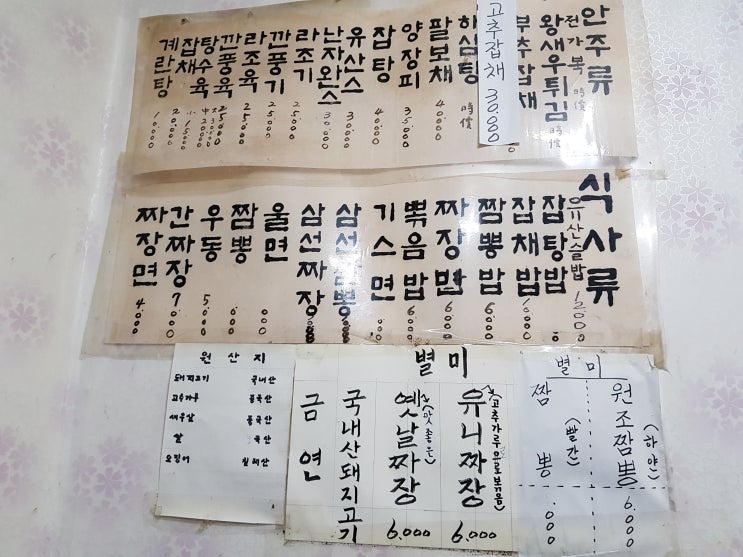 안주류
전가복 時價
왕새우튀김 時價
부추잡채
고추잡채 30.000
해삼탕 時價
팔보채 40.000
양장피 35.000
잡탕 40.000
유산스 30.000
난자완스 30.000
라조기 25.000
깐풍기 25.000
라조육 25.000
깐풍육 25.000
탕수육
잡채 20.000
계란탕 10.000
식사류
유산슬밥 12.000
잡탕밥
잡채밥 6.000
짬뽕밥 6.000
짜장밥 6.000
볶음밥 6.000
기스면
삼선짬뽕
삼선짜장
울면
짬뽕
우동
간짜장 7.000
짜장면 4.000
원산지
돼지고기 국내산
고추가루 중국산
새우살 중국산
쌀 국산
오징어 칠레산
별미
유니짜장 (고추가루유로볶음) 6.000
옛날짜장 (맛좋은) 6.000
국내산돼지고기
금연
별미
원조짬뽕 (하얀) 6.000
짬뽕 (빨간)